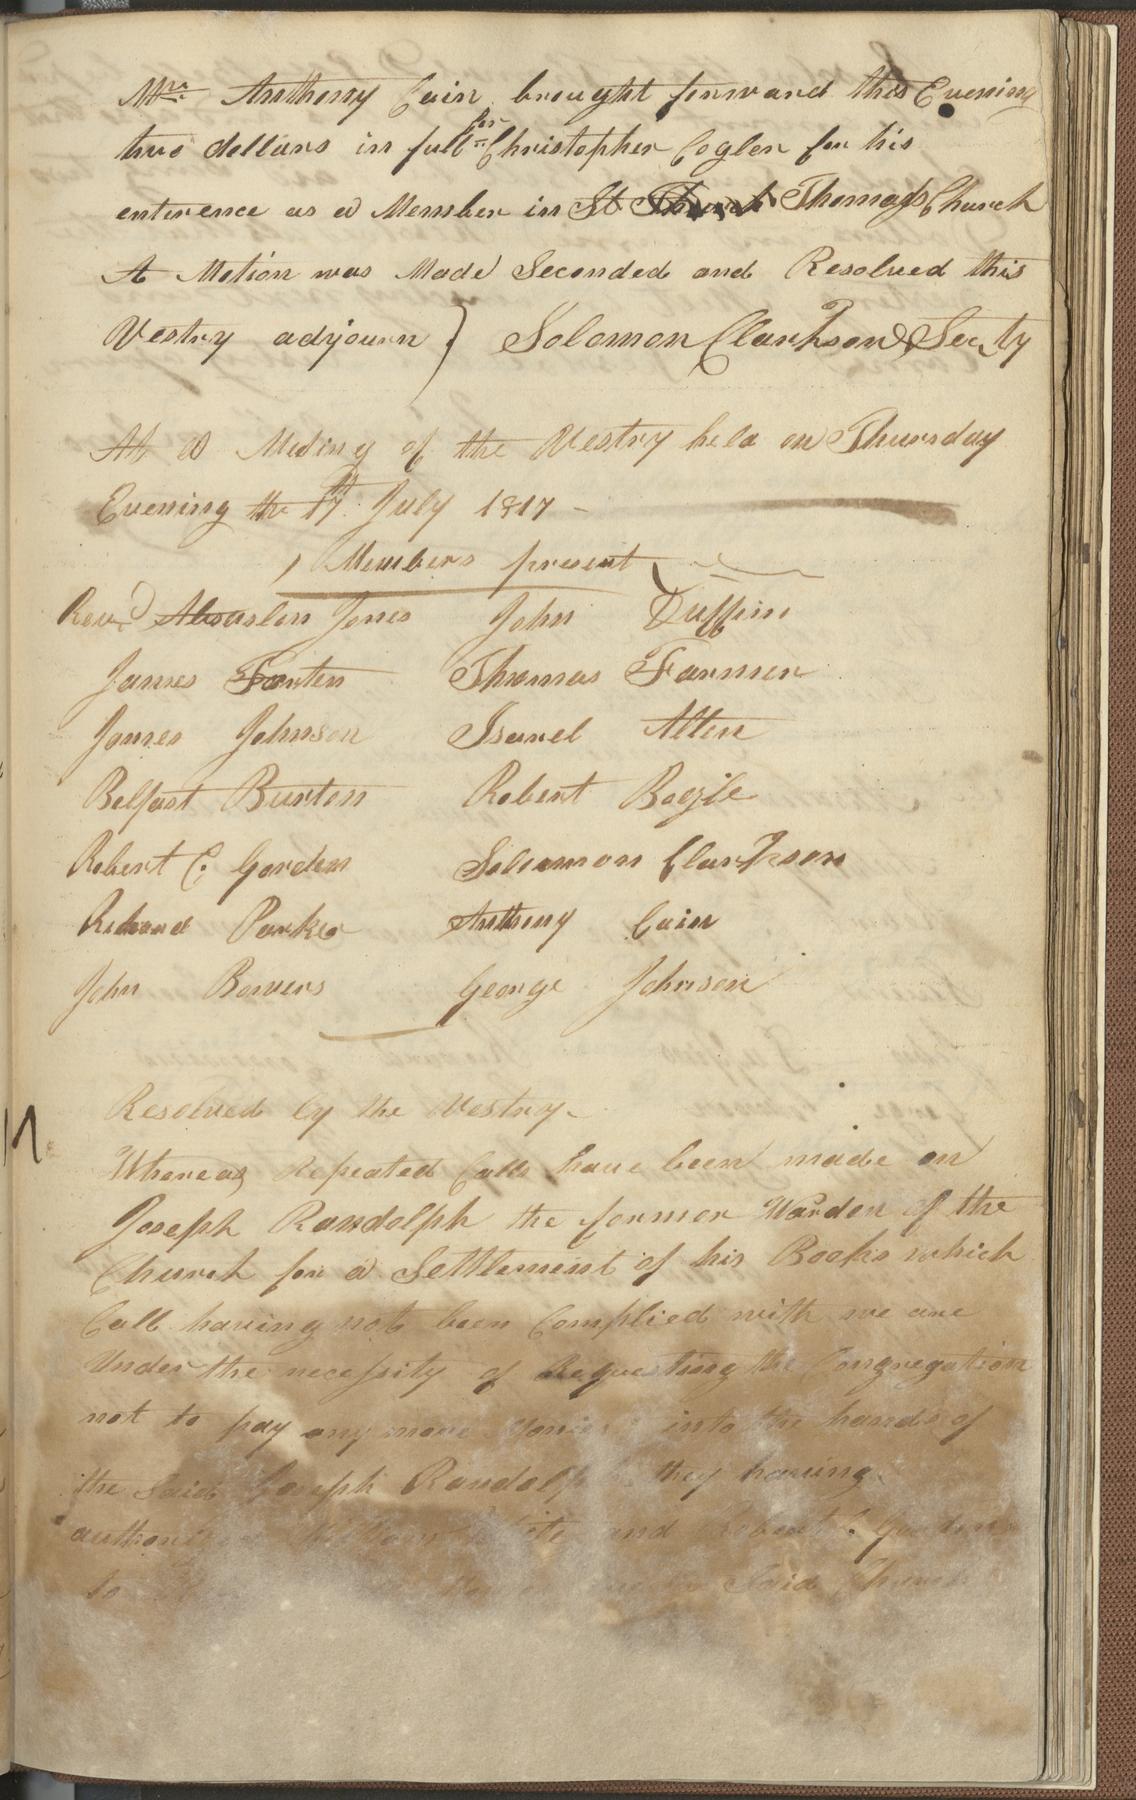 Mr. Anthony Cain brought forward this Evening
two dollars in full for Christopher Cogler for his
enterence as a Member in St Thomass Church
A Motion was Made Seconded and Resolved this
Vestry adjourn } Solomon Clarkson Secty
At a Meting of the Vestry held on Thursday
Evening the 17th July 1817 -
Members present
Revd. Absaslon Jones John Duffin
James Forten Thomas Farmer
James Johnson Israel Allen
Belfast Burton Robert Bogle
Robert C. Gorden Solomon Clarkson
Richard Parker Anthony Cain
John Bowers George Johnson
Resolved by the Vestry
Whereas Repeated Calls have been made on
Joseph Randolph the former Warden of the
Church for a Settlement of his Books which
Call having not been Complied with we are
Under the necessity of Requesting the Congregation
not to pay any more Monies into the hands of
the Said Joseph Randolph they having
and Robert C. Gorden
to Said Church